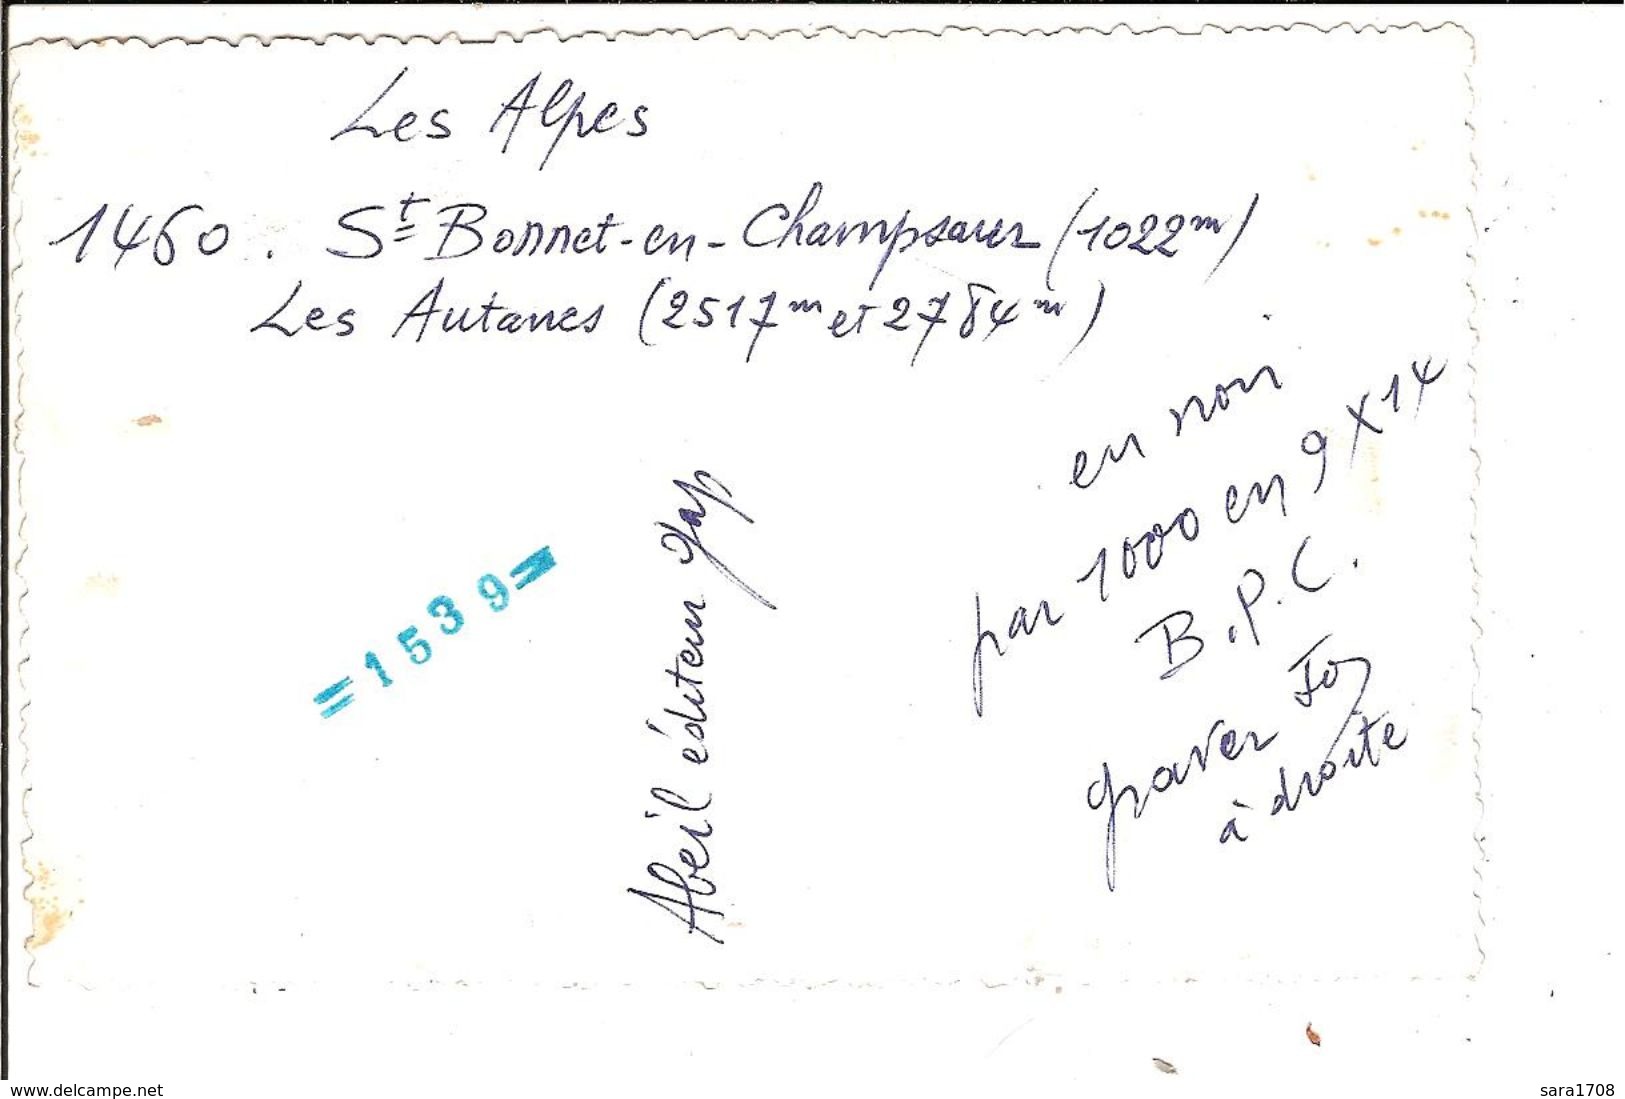 Les Alpes
1460. St Bonnet-en-Champsaur (1022m)
Les Autanes (2517m et 2784m)
en noir
par 1000 en 9 X 14
B.P.C.
graver
à droite
Abeil éditeur gap
=1539=
www.delcampe.net
sara1708